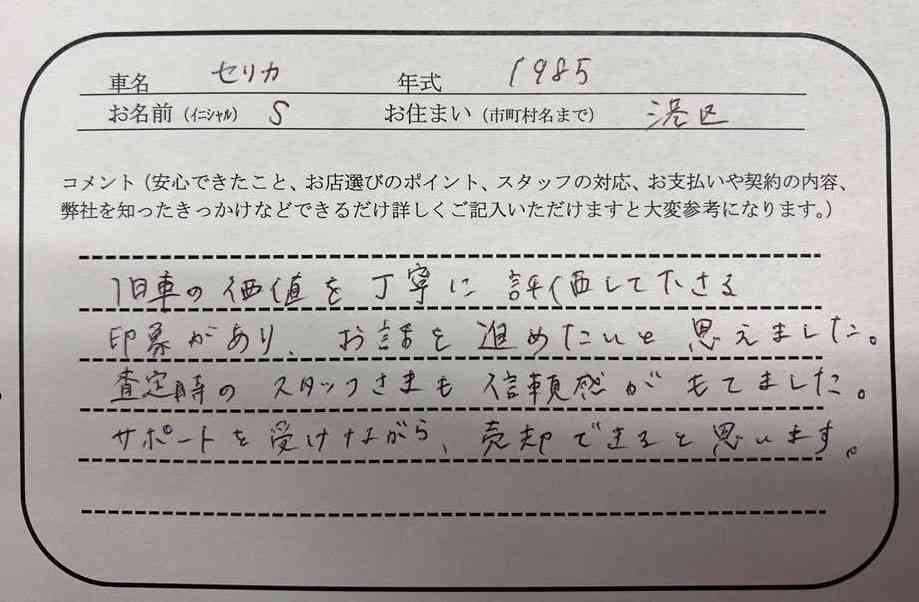 車名 セリカ 年式 1985
お名前（イニシャル） S お住まい（市町村名まで） 港区
コメント（安心できたこと、お店選びのポイント、スタッフの対応、お支払いや契約の内容、
弊社を知ったきっかけなどできるだけ詳しくご記入いただけますと大変参考になります。）
旧車の価値を丁寧に評価して下さる
印象があり、お話を進めたいと思えました。
査定時のスタッフさまも信頼感がもてました。
サポートを受けながら、売却できると思います。